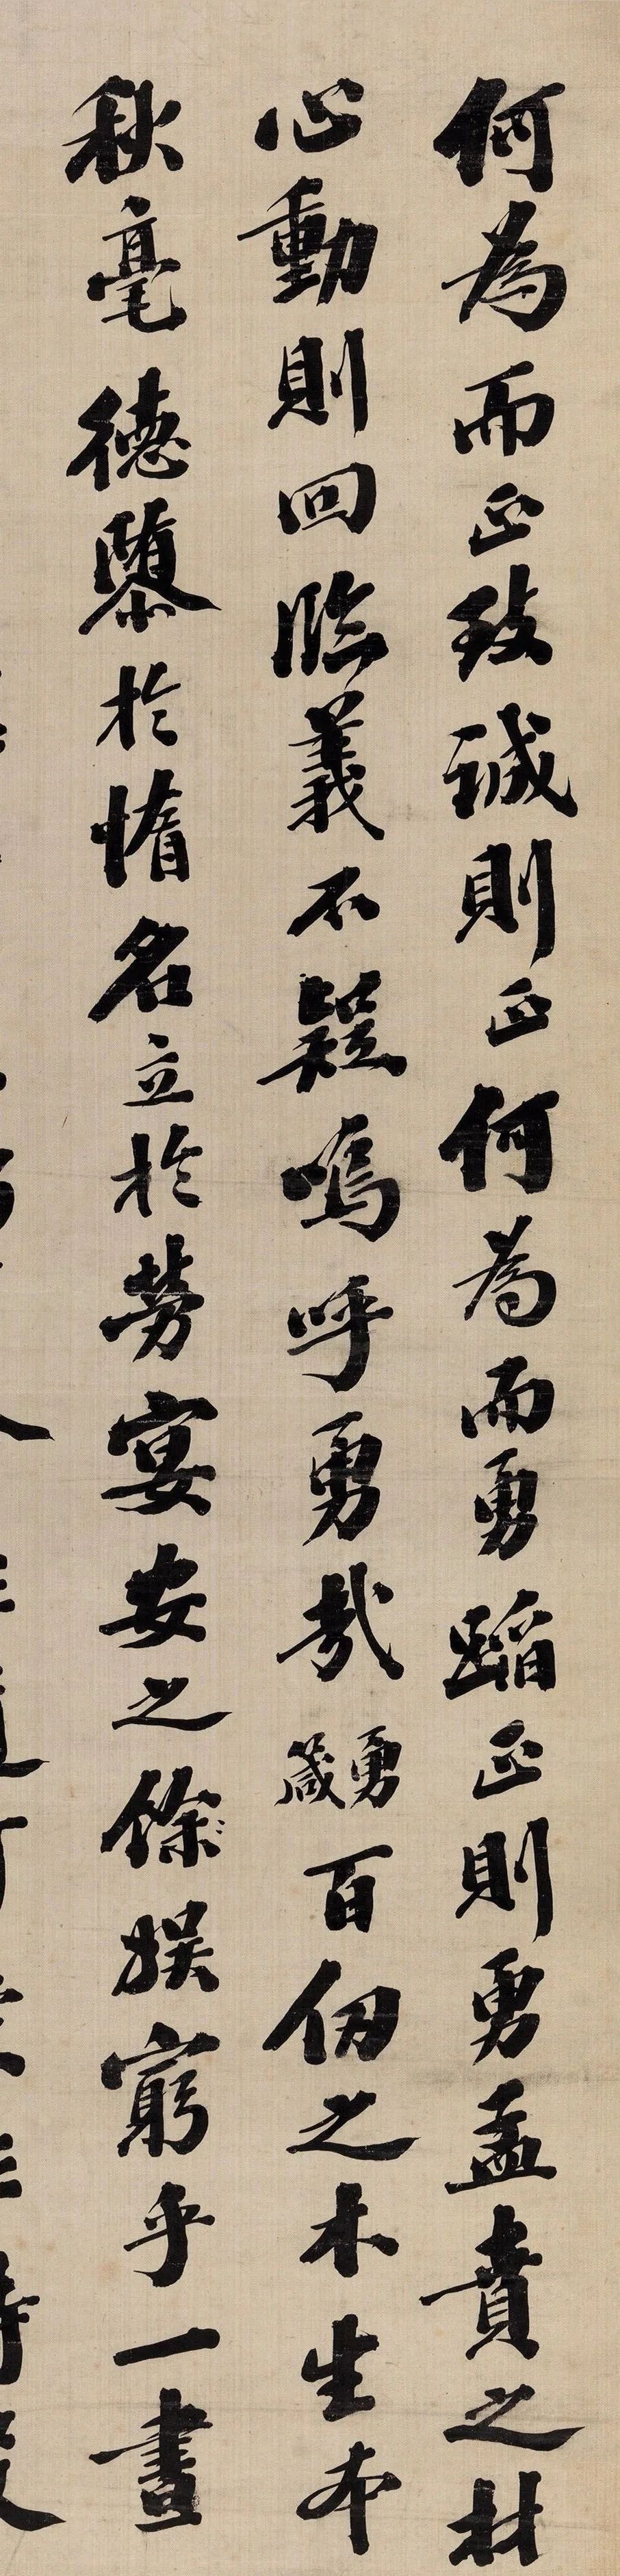 何為而正致誠則正何為而勇蹈正則勇孟賁之材
心動則回臨義不疑嗚呼勇哉勇箴百仞之木生本
秋毫德隳於惰名立於勞宴安之餘娛窮乎一晝